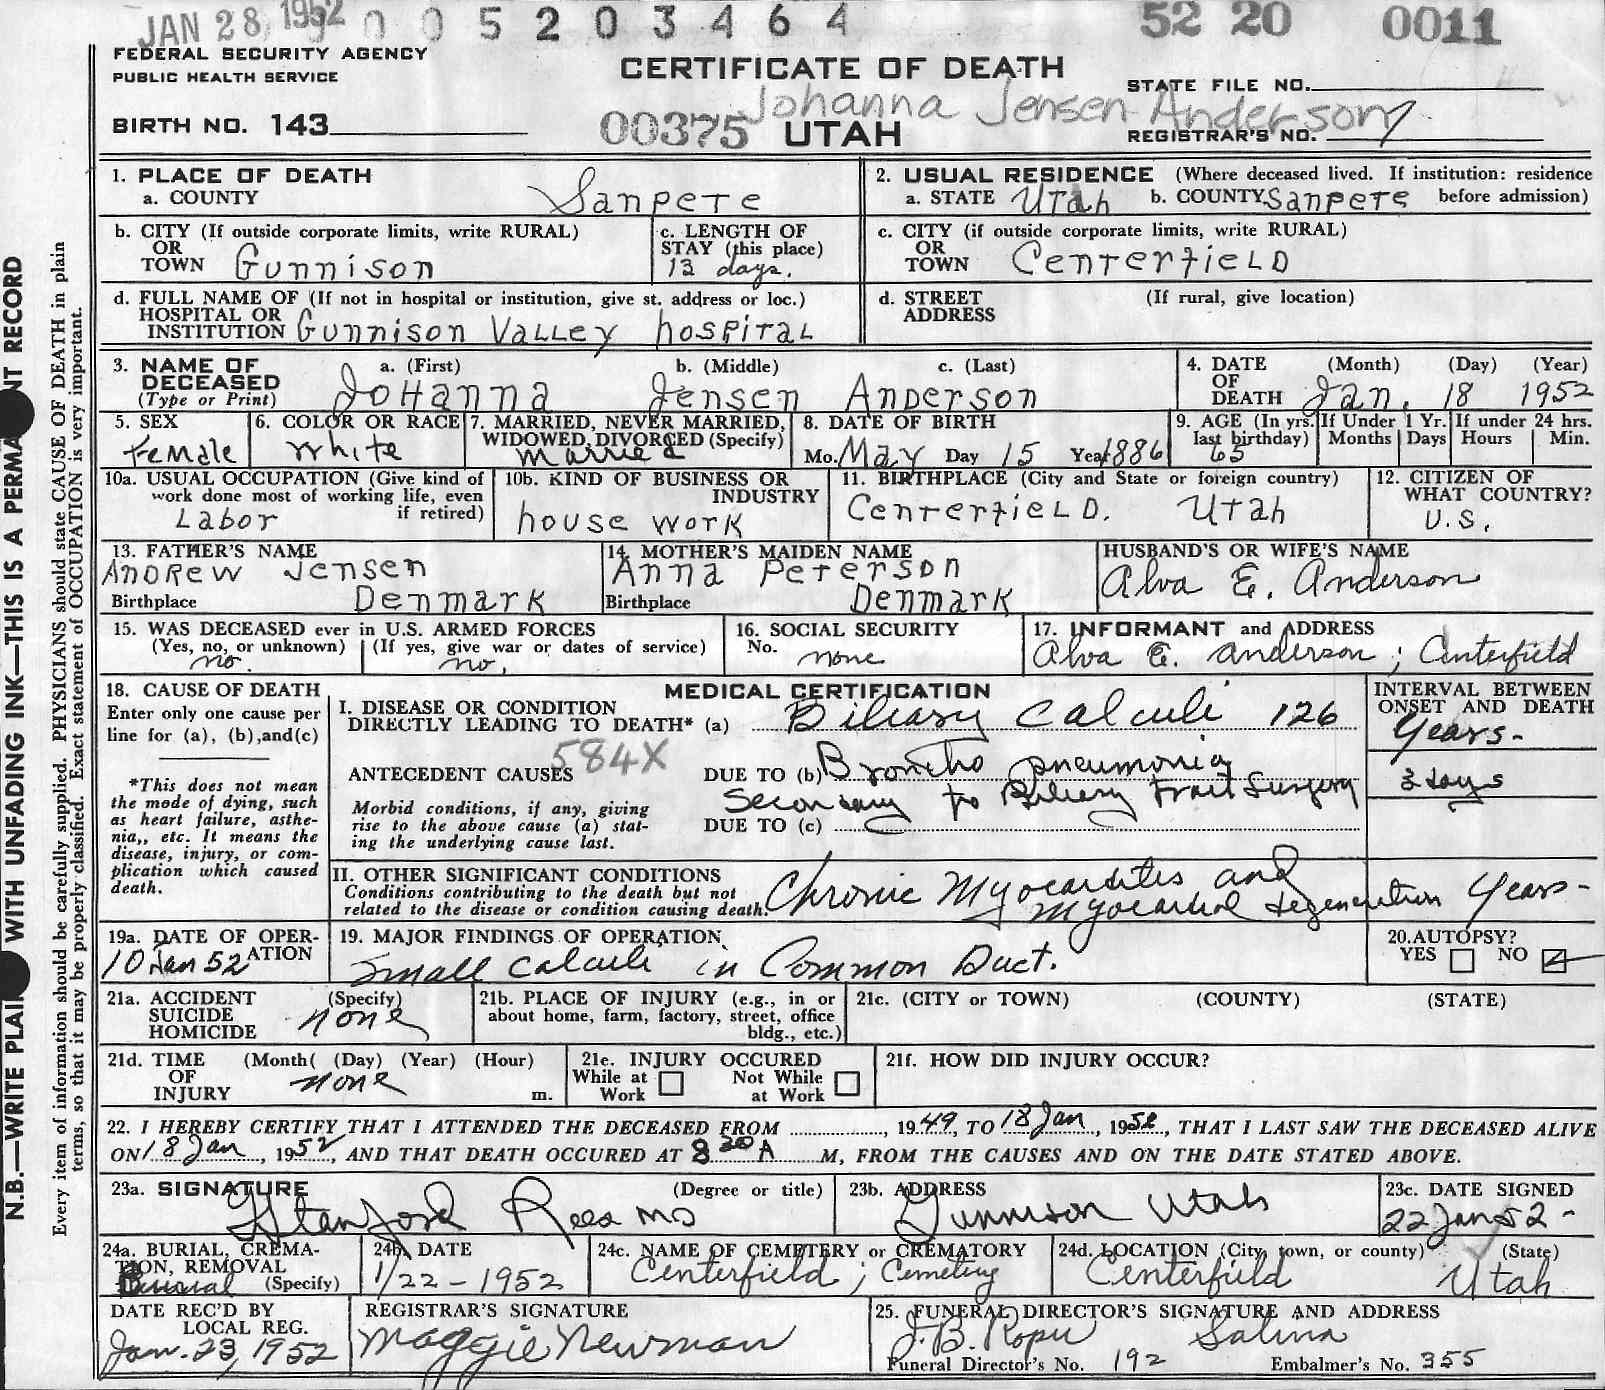 JAN 28 1952 0 0 5 2 0 3 4 6 4 52 20 0011
FEDERAL SECURITY AGENCY
PUBLIC HEALTH SERVICE
CERTIFICATE OF DEATH
STATE FILE NO.
Johanna Jensen Anderson
BIRTH NO. 143
00375 UTAH
REGISTRAR'S NO. 7
1. PLACE OF DEATH
a. COUNTY Sanpete
2. USUAL RESIDENCE (Where deceased lived. If institution: residence
a. STATE Utah b. COUNTY Sanpete before admission)
b. CITY (If outside corporate limits, write RURAL)
OR
TOWN Gunnison
c. LENGTH OF
STAY (this place)
13 days.
c. CITY (if outside corporate limits, write RURAL)
OR
TOWN Centerfield
d. FULL NAME OF (If not in hospital or institution, give st. address or loc.)
HOSPITAL OR
INSTITUTION Gunnison Valley hospital
d. STREET (If rural, give location)
ADDRESS
3. NAME OF
DECEASED
(Type or Print)
a. (First) b. (Middle) c. (Last)
Johanna Jensen Anderson
4. DATE (Month) (Day) (Year)
OF
DEATH Jan. 18 1952
5. SEX
Female
6. COLOR OR RACE
White
7. MARRIED, NEVER MARRIED,
WIDOWED, DIVORCED (Specify)
Married
8. DATE OF BIRTH
Mo. May Day 15 Year 1886
9. AGE (In yrs.
last birthday)
65
If Under 1 Yr.
Months Days
If under 24 hrs.
Hours Min.
10a. USUAL OCCUPATION (Give kind of
work done most of working life, even
if retired)
Labor
10b. KIND OF BUSINESS OR
INDUSTRY
house work
11. BIRTHPLACE (City and State or foreign country)
Centerfield. Utah
12. CITIZEN OF
WHAT COUNTRY?
U.S.
13. FATHER'S NAME
Andrew Jensen
Birthplace Denmark
14. MOTHER'S MAIDEN NAME
Anna Peterson
Birthplace Denmark
HUSBAND'S OR WIFE'S NAME
Alva E. Anderson
15. WAS DECEASED ever in U.S. ARMED FORCES
(Yes, no, or unknown) (If yes, give war or dates of service)
no. no.
16. SOCIAL SECURITY
No. none
17. INFORMANT and ADDRESS
Alva E. Anderson; Centerfield
18. CAUSE OF DEATH
Enter only one cause per
line for (a), (b),and(c)
*This does not mean
the mode of dying, such
as heart failure, asthe-
nia,, etc. It means the
disease, injury, or com-
plication which caused
death.
MEDICAL CERTIFICATION
I. DISEASE OR CONDITION
DIRECTLY LEADING TO DEATH* (a) Biliary Calculi 126
584X
ANTECEDENT CAUSES
DUE TO (b) Broncho pneumonia
Secondary to Biliary Tract Surgery
Morbid conditions, if any, giving
rise to the above cause (a) stat-
ing the underlying cause last.
DUE TO (c)
INTERVAL BETWEEN
ONSET AND DEATH
Years-
3 days
II. OTHER SIGNIFICANT CONDITIONS
Conditions contributing to the death but not
related to the disease or condition causing death.
Chronic Myocarditis and
Myocardial degeneration Years-
19a. DATE OF OPER-
ATION
10 Jan 52
19. MAJOR FINDINGS OF OPERATION
Small calculi in Common Duct.
20. AUTOPSY?
YES NO
21a. ACCIDENT (Specify)
SUICIDE
HOMICIDE none
21b. PLACE OF INJURY (e.g., in or
about home, farm, factory, street, office
bldg., etc.)
21c. (CITY or TOWN) (COUNTY) (STATE)
21d. TIME (Month( (Day) (Year) (Hour)
OF
INJURY none m.
21e. INJURY OCCURED
While at Work
Not While at Work
21f. HOW DID INJURY OCCUR?
22. I HEREBY CERTIFY THAT I ATTENDED THE DECEASED FROM , 1949, TO 18 Jan, 1952, THAT I LAST SAW THE DECEASED ALIVE
ON 18 Jan, 1952, AND THAT DEATH OCCURED AT 8 30 A M, FROM THE CAUSES AND ON THE DATE STATED ABOVE.
23a. SIGNATURE (Degree or title)
Stanford Rees MD
23b. ADDRESS
Gunnison Utah
23c. DATE SIGNED
22 Jan 52-
24a. BURIAL, CREMA-
TION, REMOVAL
Burial (Specify)
24b. DATE
1/22-1952
24c. NAME OF CEMETERY or CREMATORY
Centerfield; Cemetery
24d. LOCATION (City, town, or county) (State)
Centerfield Utah
DATE REC'D BY
LOCAL REG.
Jan. 23, 1952
REGISTRAR'S SIGNATURE
Maggie Newman
25. FUNERAL DIRECTOR'S SIGNATURE AND ADDRESS
Salina
Funeral Director's No. 192 Embalmer's No. 355
N.B.—WRITE PLAI WITH UNFADING INK—THIS IS A PERMA NT RECORD
Every item of information should be carefully supplied. PHYSICIANS should state CAUSE OF DEATH in plain
terms, so that it may be properly classified. Exact statement of OCCUPATION is very important.